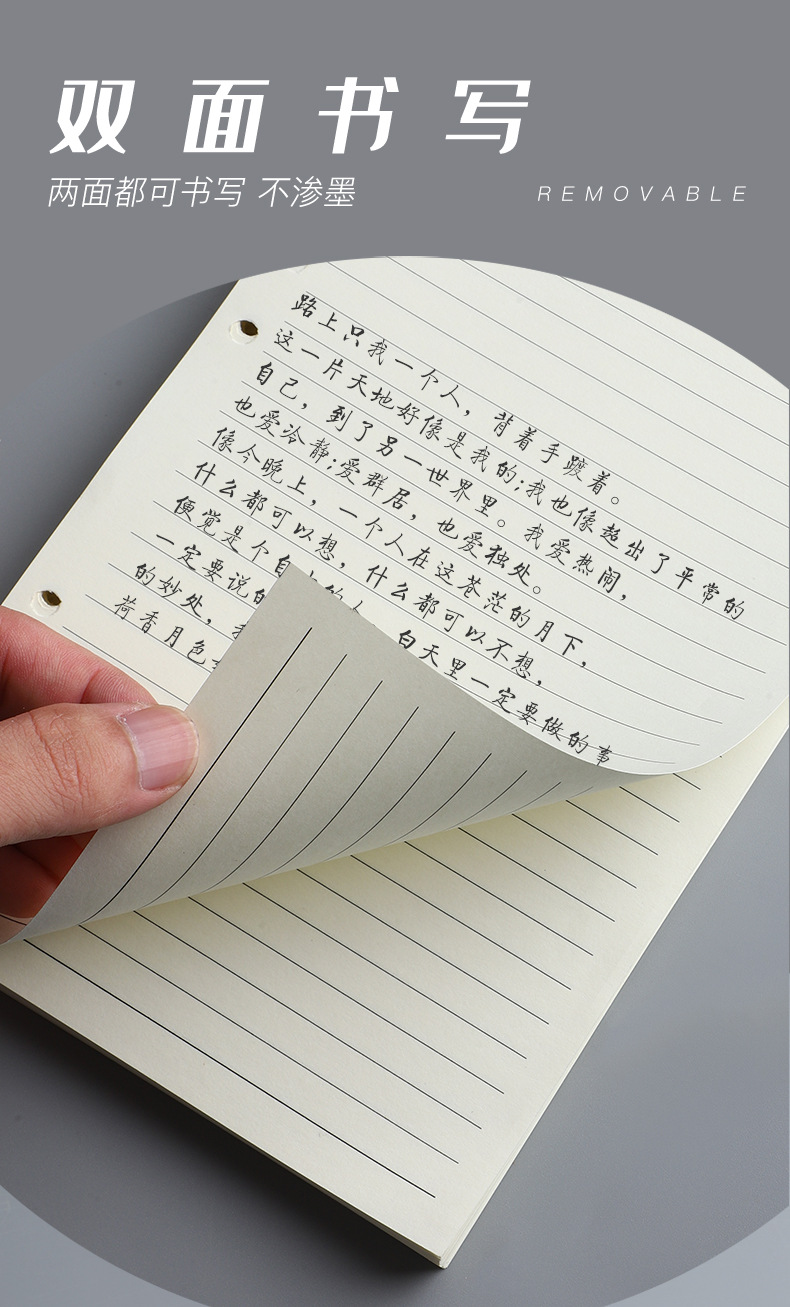 双面书写
两面都可书写 不渗墨
REMOVABLE
路上只我一个人，背着手踱着。
这一片天地好像是我的;我也像超出了平常的
自己，到了另一世界里。我爱热闹，
也爱冷静;爱群居，也爱独处。
像今晚上，一个人在这苍茫的月下，
什么都可以想，什么都可以不想，
便觉是个自 的 白天里一定要做的事
一定要说的
的妙处，
荷香月色